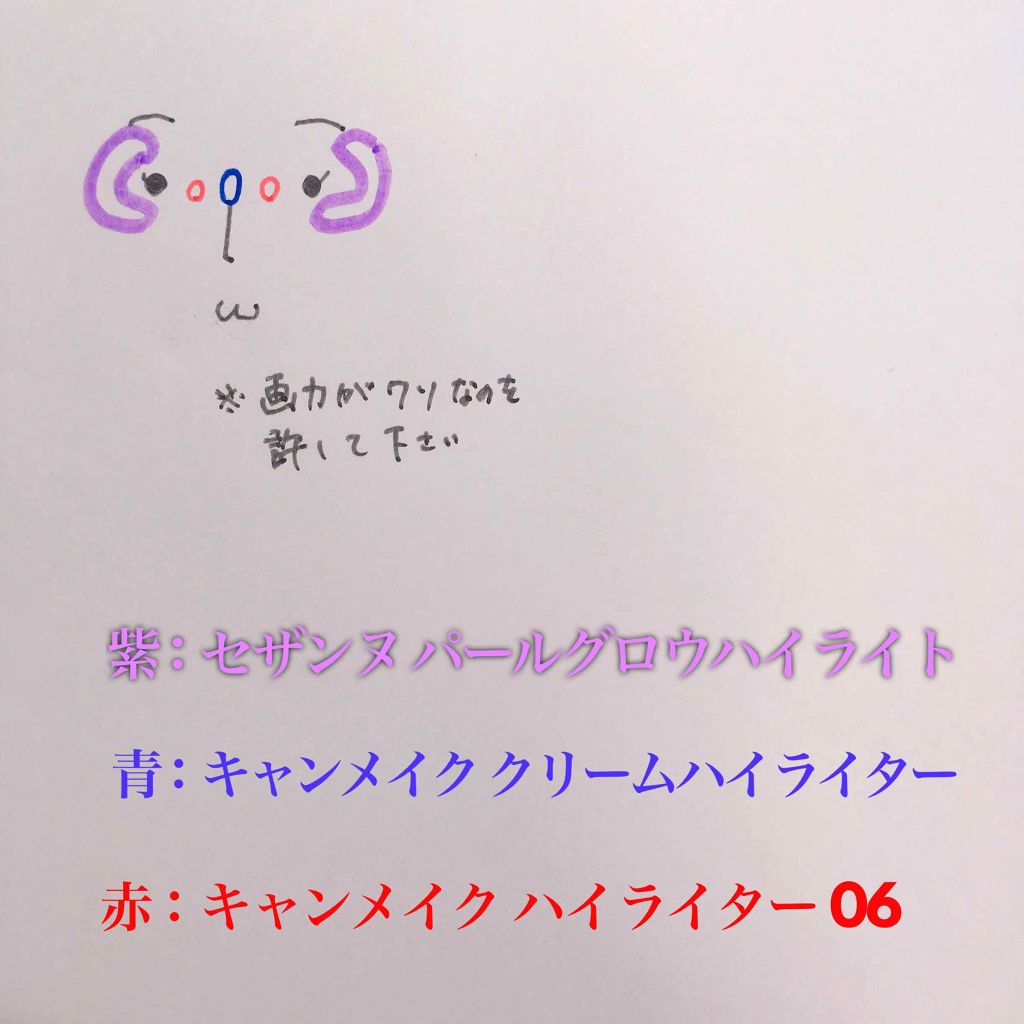 ※画力がクソなのを
許して下さい
紫：セザンヌ パールグロウハイライト
青：キャンメイク クリームハイライター
赤：キャンメイク ハイライター 06